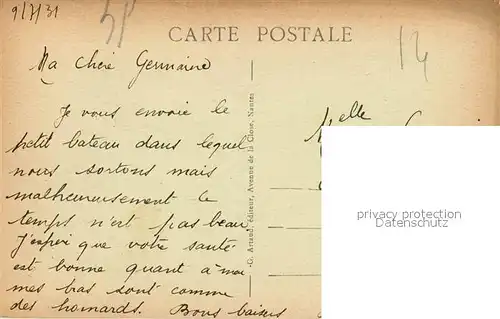 9/7/31
CARTE POSTALE
14
Ma chère Germaine
Je vous envoie le
petit bateau dans lequel
nous sortons mais
malheureusement le
temps n'est pas beau.
J'espère que votre santé
est bonne quant à moi
mes bras sont comme
des homards. Bons baisers
G. Artaud, éditeur, Avenue de la Close, Nantes
Melle
privacy protection
Datenschutz